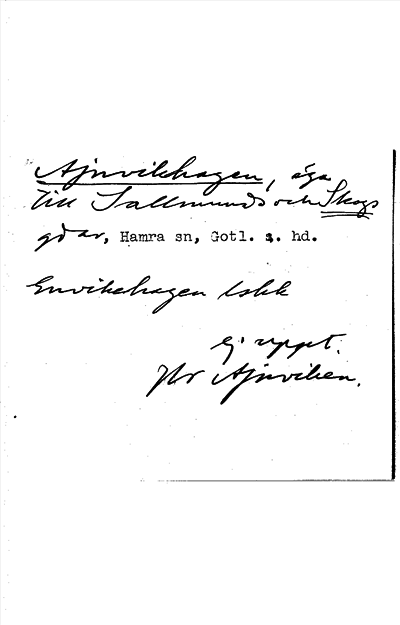 Ajnvikhagen, äga
till Sallmunds och Skogs
gdar, Hamra sn, Gotl. s. hd.
Envikehagen lskk
Ej uppt.
Jfr Ajnviken.